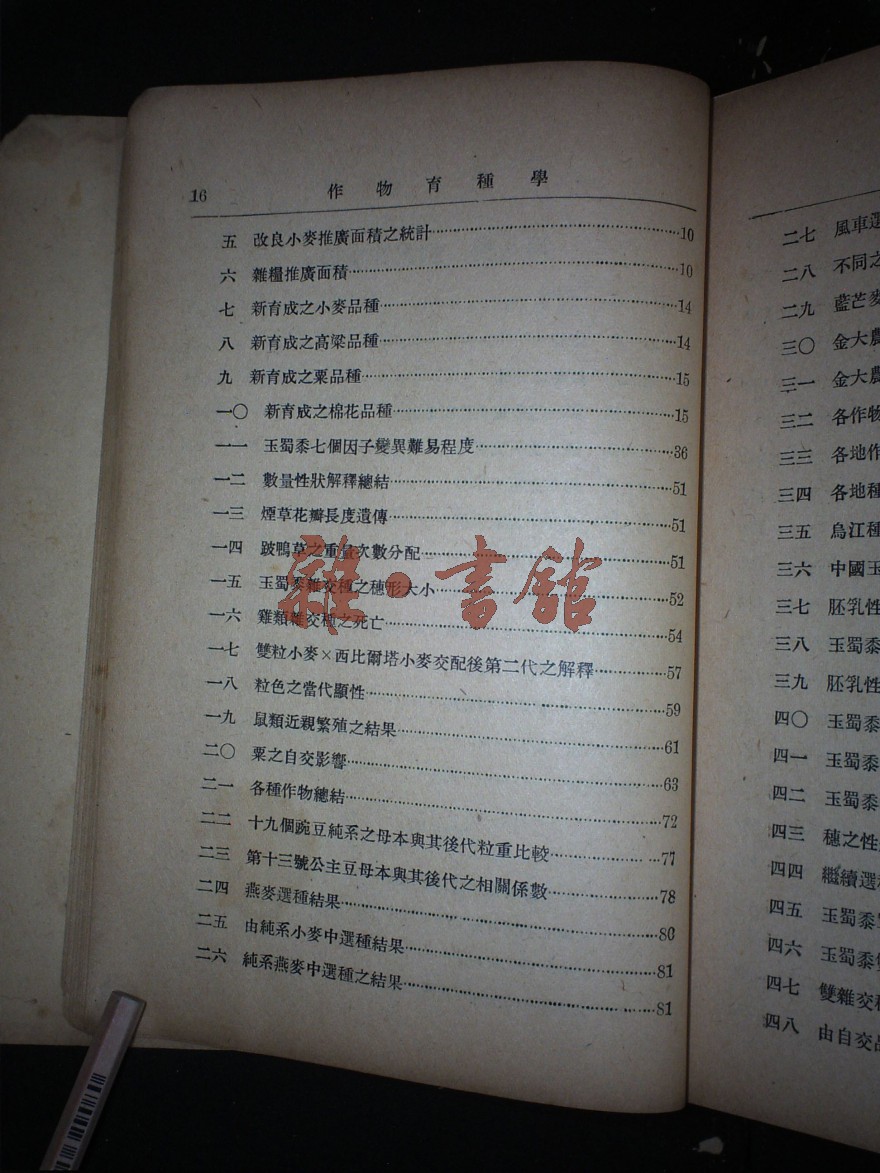 16 作物育種學
五 改良小麥推廣面積之統計……10
六 雜糧推廣面積……10
七 新育成之小麥品種……14
八 新育成之高梁品種……14
九 新育成之粟品種……15
一〇 新育成之棉花品種……15
一一 玉蜀黍七個因子變異難易程度……36
一二 數量性狀解釋總結……51
一三 煙草花瓣長度遺傳……51
一四 跛鴨草之重量次數分配……51
一五 玉蜀黍雜交種之穗形大小……52
一六 雞類雜交種之死亡……54
一七 雙粒小麥×西比爾塔小麥交配後第二代之解釋……57
一八 粒色之當代顯性……59
一九 鼠類近親繁殖之結果……61
二〇 粟之自交影響……63
二一 各種作物總結……72
二二 十九個豌豆純系之母本與其後代粒重比較……77
二三 第十三號公主豆母本與其後代之相關係數……78
二四 燕麥選種結果……80
二五 由純系小麥中選種結果……81
二六 純系燕麥中選種之結果……81
雜·書館
二七 風車選
二八 不同之
二九 藍芒麥
三〇 金大農
三一 金大農
三二 各作物
三三 各地作
三四 各地種
三五 烏江種
三六 中國玉
三七 胚乳性
三八 玉蜀黍
三九 胚乳性
四〇 玉蜀黍
四一 玉蜀黍
四二 玉蜀黍
四三 穗之性
四四 繼續選
四五 玉蜀黍
四六 玉蜀黍
四七 雙雜交
四八 由自交